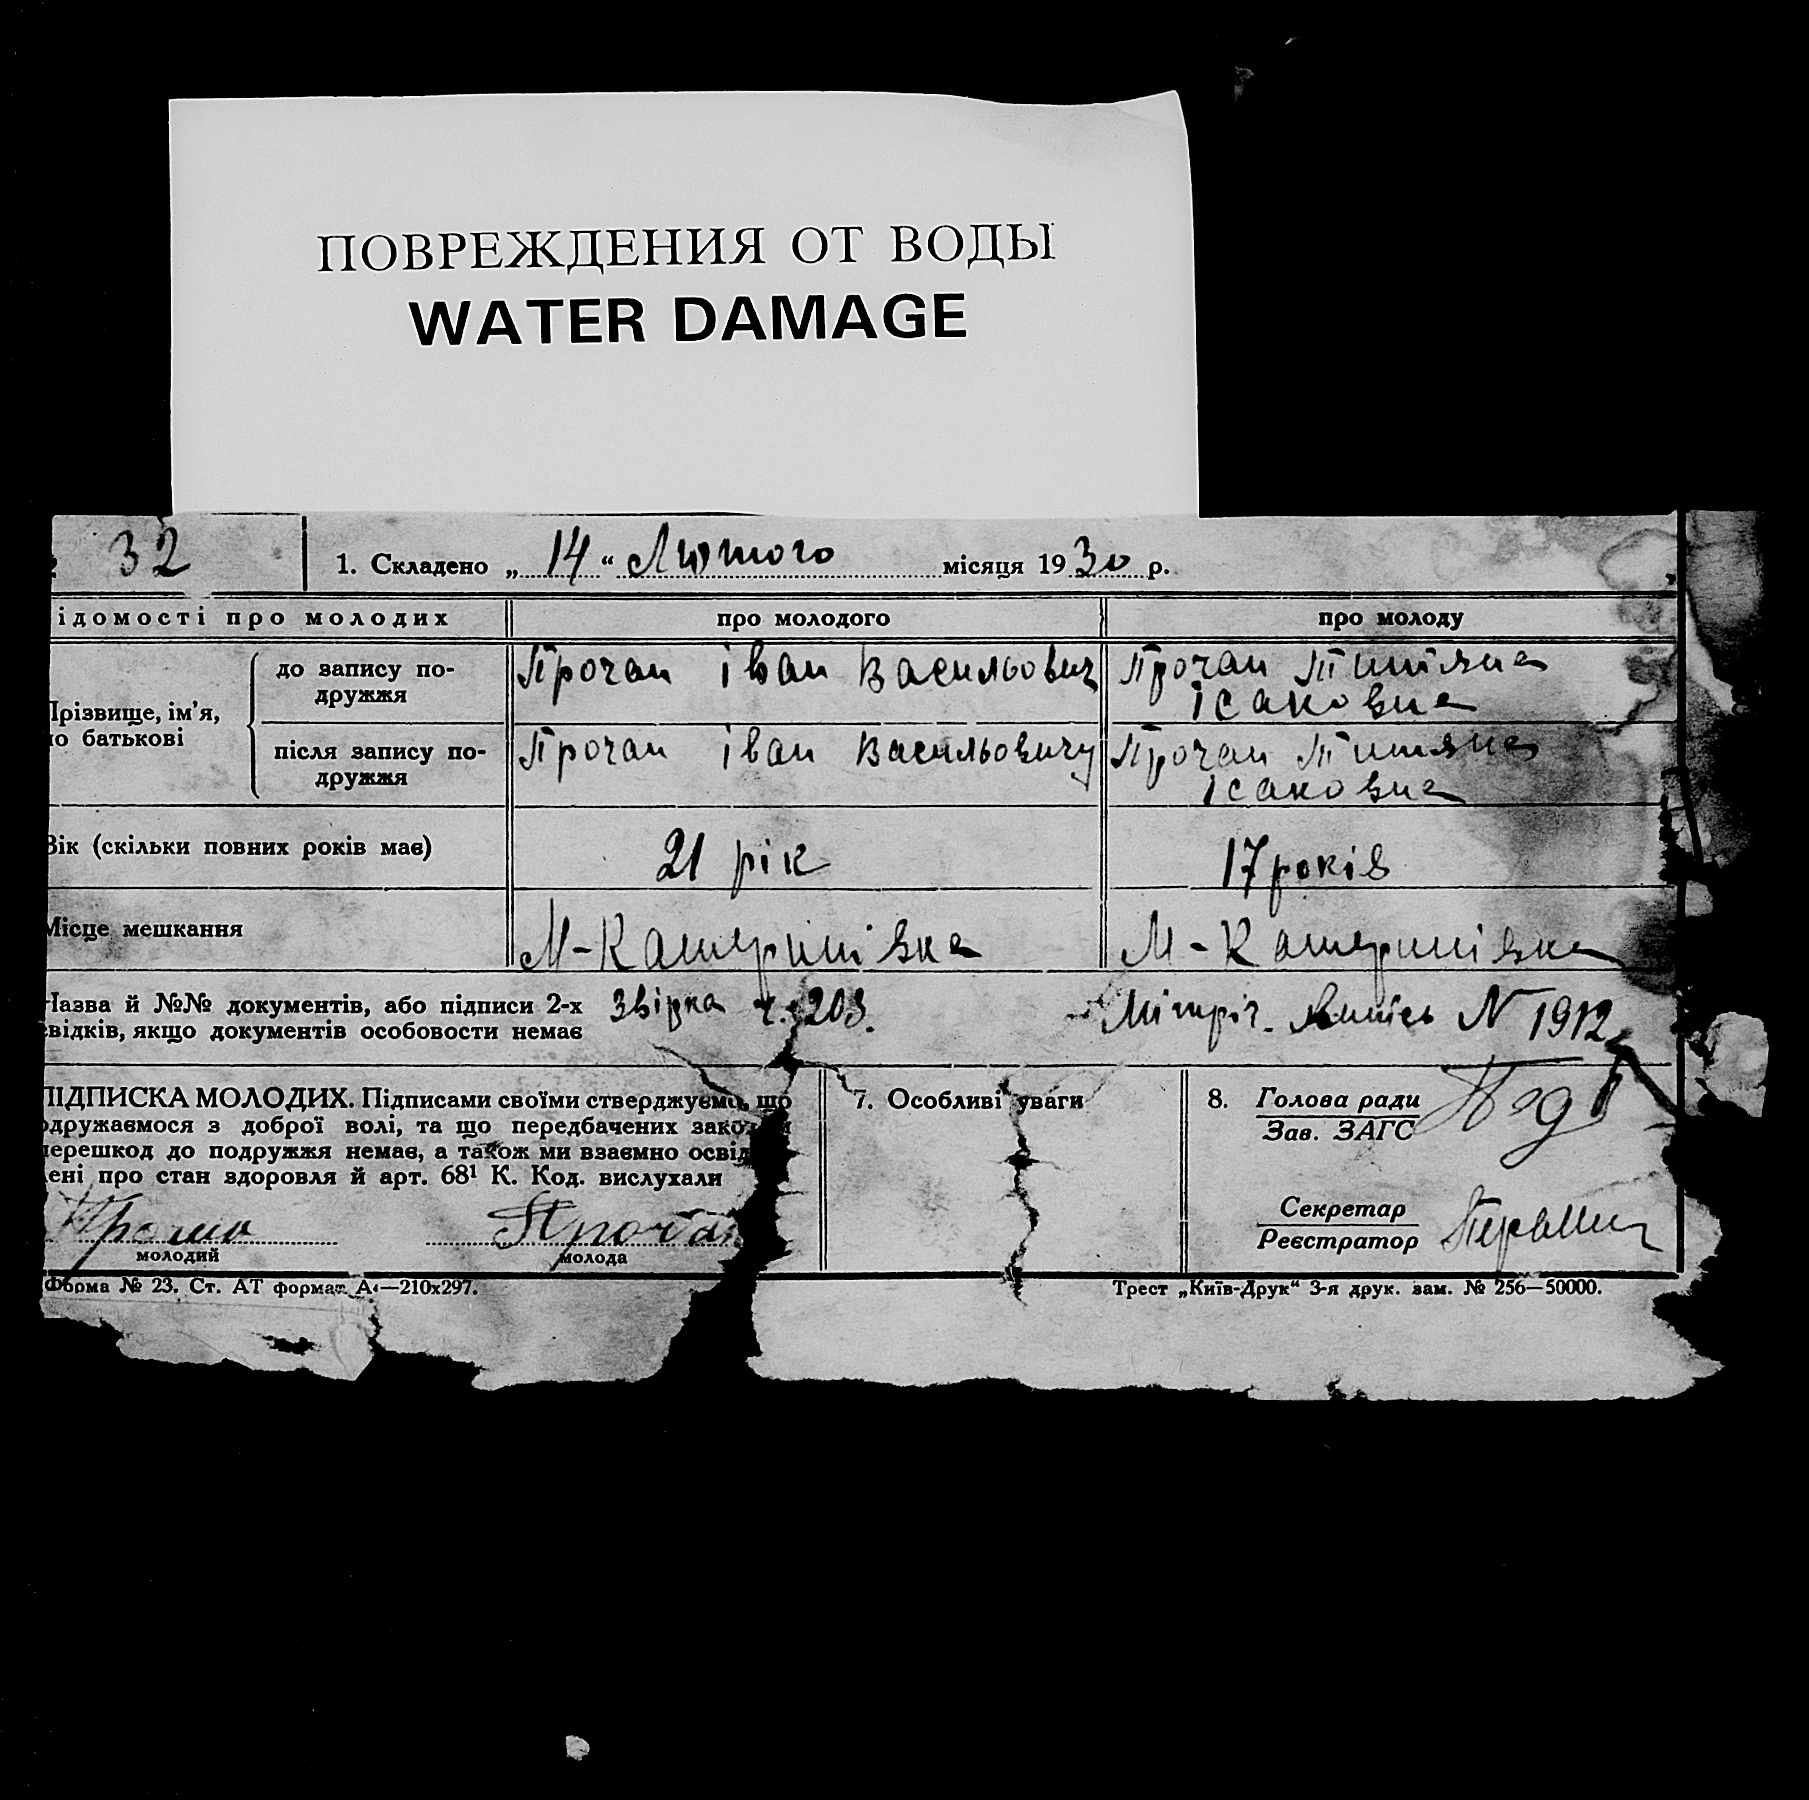 ПОВРЕЖДЕНИЯ ОТ ВОДЫ
WATER DAMAGE
32
1. Складено „ 14 “ Лютого місяця 1930 р.
ідомості про молодих про молодого про молоду
різвище, ім'я,
о батькові
до запису по-
дружжя
Прочан Іван Васильович
Прочан Титяна
Ісаковна
після запису по-
дружжя
Прочан Іван Васильовичу
Прочан Титяна
Ісаковна
Вік (скільки повних років має) 21 рік 17 років
Місце мешкання М-Катеринівка М-Катеринівка
Назва й №№ документів, або підписи 2-х
свідків, якщо документів особовости немає
Звірка ч. 203. Мітріч. Випись N 1912
ПІДПИСКА МОЛОДИХ. Підписами своїми стверджуємо, що
одружаємося з доброї волі, та що передбачених зако
перешкод до подружжя немає, а також ми взаємно освід
ені про стан здоров'я й арт. 68¹ К. Код. вислухали
Прочан
молодий молода
7. Особливі уваги
8. Голова ради
Зав. ЗАГС
Секретар
Реєстратор
Форма № 23. Ст. АТ формат А4—210х297.
Трест „Київ-Друк“ 3-я друк. зам. № 256—50000.